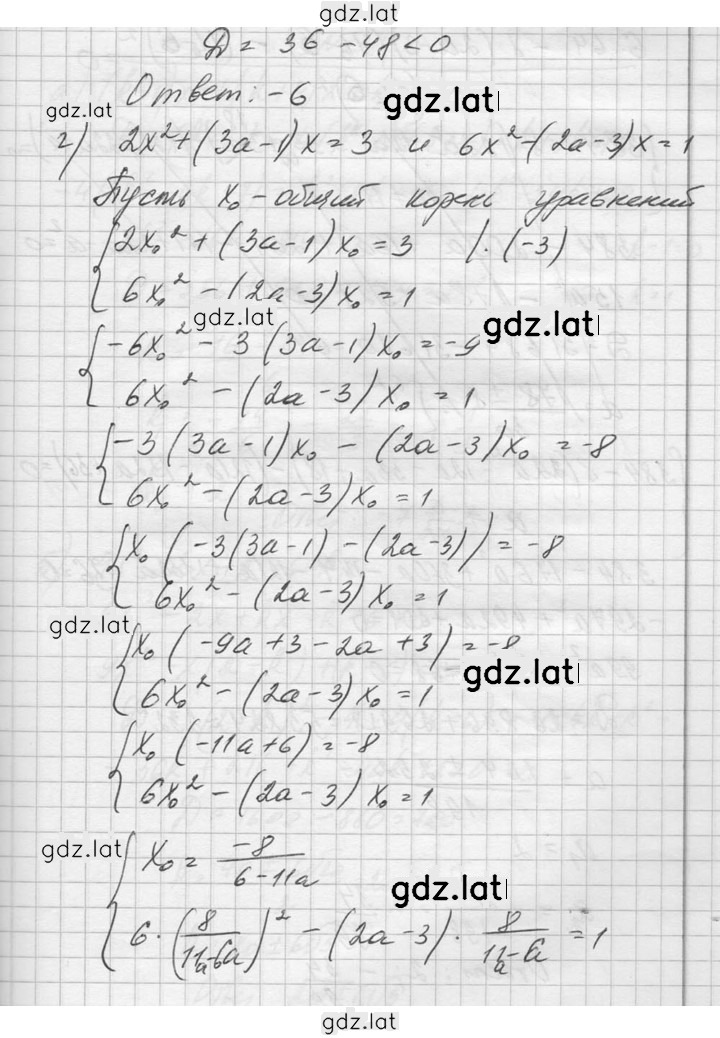 gdz.lat
D = 36 - 48 < 0
Ответ: -6
gdz.lat
gdz.lat
2) 2x² + (3a - 1)x = 3 и 6x² - (2a - 3)x = 1
Пусть x₀ - общий корень уравнений
{ 2x₀² + (3a - 1)x₀ = 3 | · (-3)
6x₀² - (2a - 3)x₀ = 1
gdz.lat
gdz.lat
{ -6x₀² - 3(3a - 1)x₀ = -9
6x₀² - (2a - 3)x₀ = 1
{ -3(3a - 1)x₀ - (2a - 3)x₀ = -8
6x₀² - (2a - 3)x₀ = 1
{ x₀(-3(3a - 1) - (2a - 3)) = -8
6x₀² - (2a - 3)x₀ = 1
gdz.lat
{ x₀(-9a + 3 - 2a + 3) = -8
gdz.lat
6x₀² - (2a - 3)x₀ = 1
{ x₀(-11a + 6) = -8
6x₀² - (2a - 3)x₀ = 1
gdz.lat
{ x₀ = -8 / (6 - 11a)
gdz.lat
6 · (8 / (11a - 6))² - (2a - 3) · 8 / (11a - 6) = 1
gdz.lat